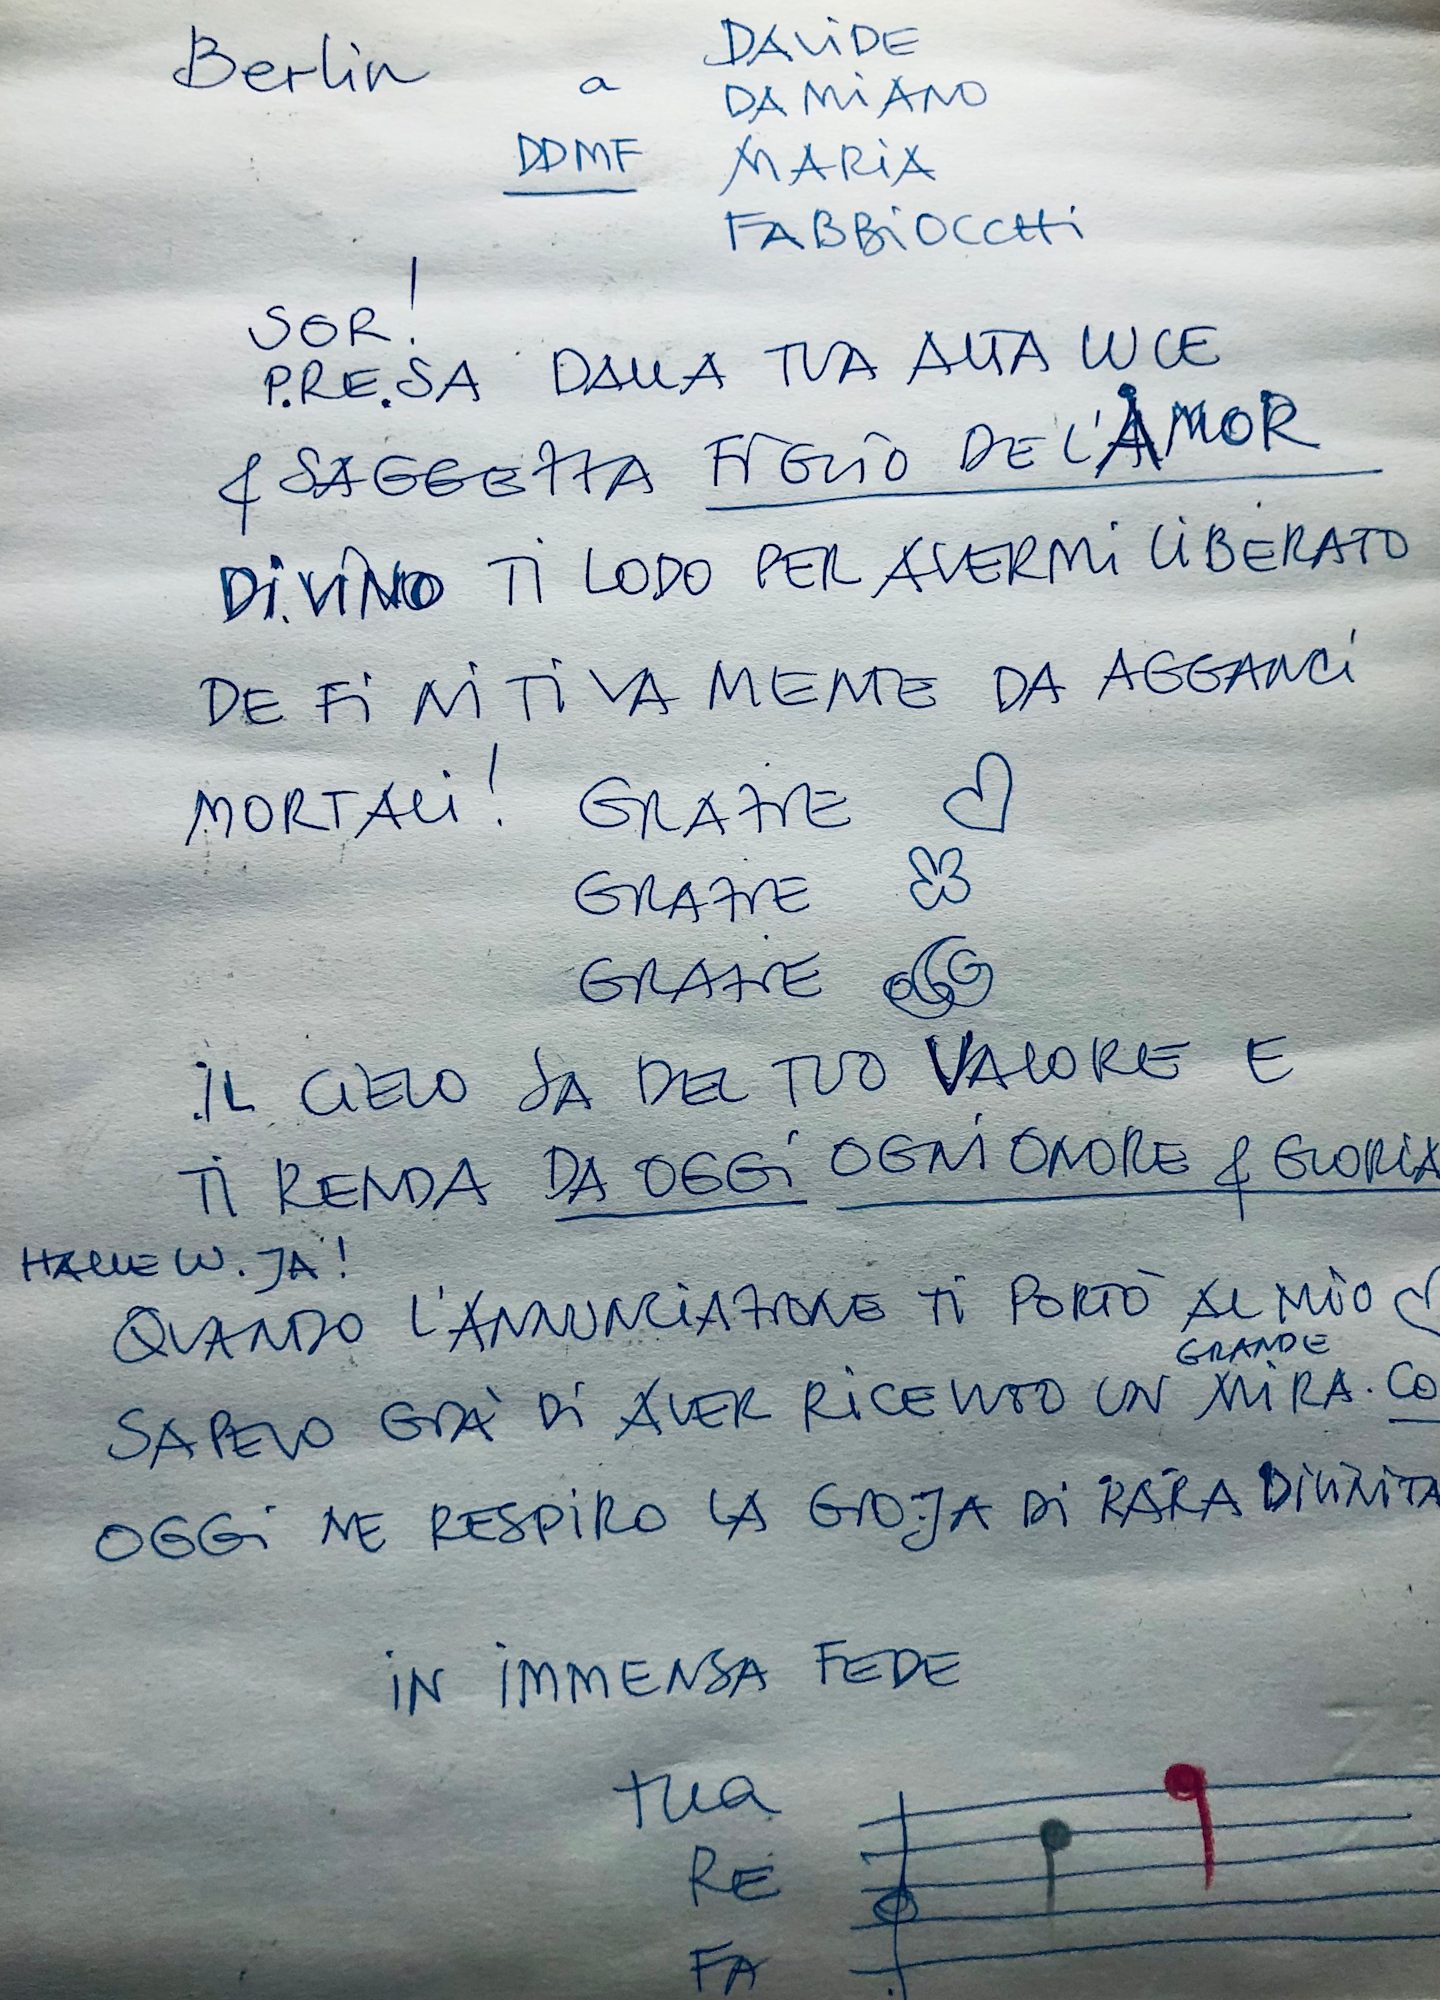 Berlin a DAViDE
DAMiANO
DDMF MARiA
FABBiOCCHi
SOR!
P.RE.SA DALLA TUA ALTA LUCE
& SAGGEZZA FiGLiO DEL'AMOR
Di.ViNO Ti LODO PER AVERMi LiBERATO
DE Fi Ni Ti VA MENTE DA AGGANCi
MORTALi! GRAZiE ♡
GRAZiE
GRAZiE
iL CiELO SA DEL TUO VALORE E
Ti RENDA DA OGGi OGNi ONORE & GLORiA
HALLELU.JA!
QUANDO L'ANNUNCiAZiONE Ti PORTÒ AL MiO ♡
GRANDE
SAPEVO GiÀ Di AVER RiCEVUTO UN MiRA.CO
OGGi NE RESPiRO LA GiO.JA Di RARA DiViNiTA
iN iMMENSA FEDE
tua
RE
FA